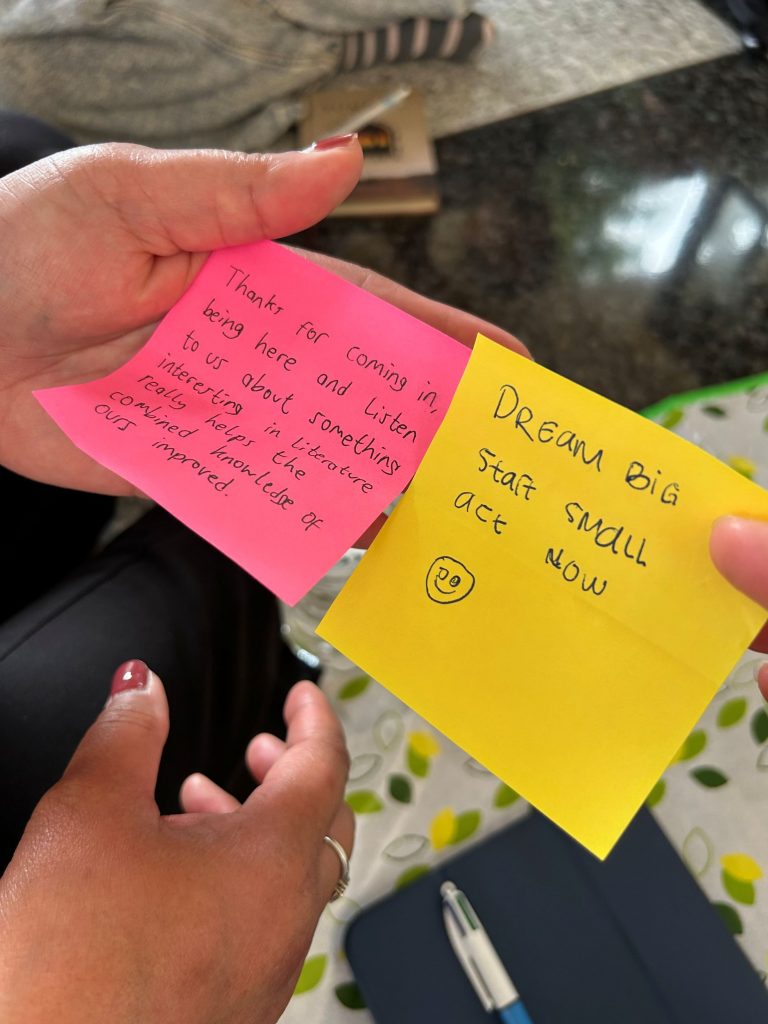 Thanks for coming in,
being here and listen
to us about something
interesting in literature
really helps the
combined knowledge of
ours improved.
DREAM BIG
Start SMALL
act NOW